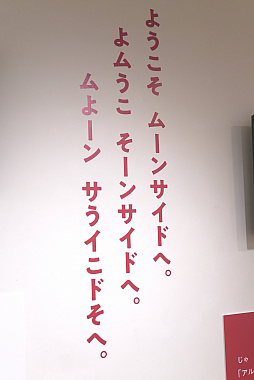 ようこそ ムーンサイドへ。
よムうこ そーンサイドへ。
ムよーン サうイこドそへ。
じゃ
「アル